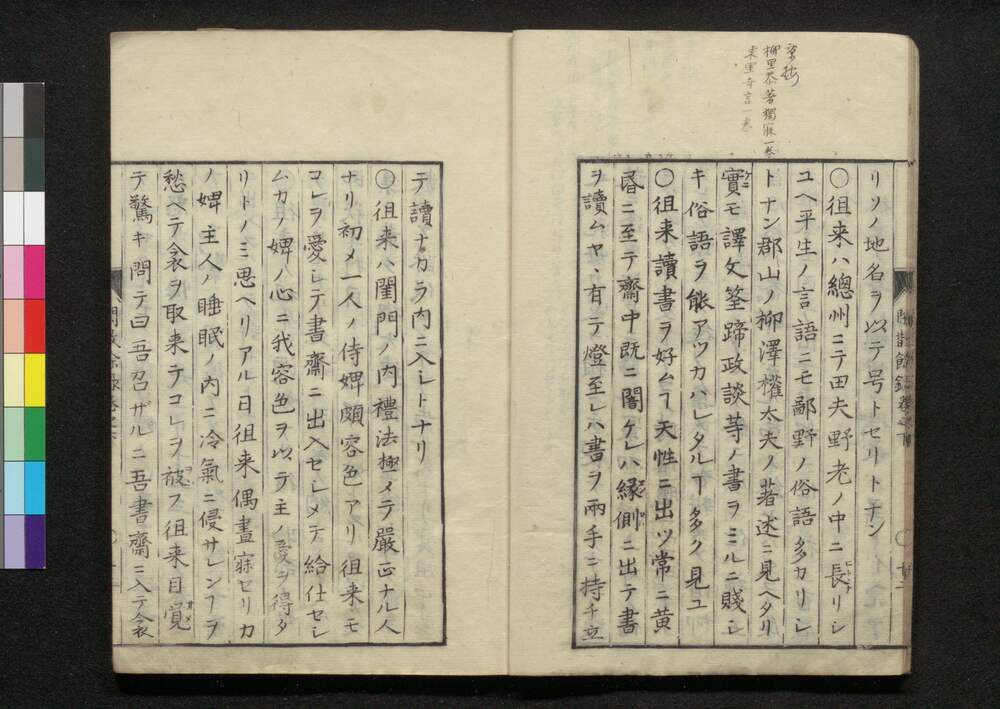 案ずるに
柳里恭著獨寐一巻
リソノ地名ヲ以テ号トセリトナン
〇徂来ハ總州ニテ田夫野老ノ中ニ長リシ
ユヘ平生ノ言語ニモ鄙野ノ俗語多カリシ
トナン郡山ノ柳澤權太夫ノ著述ニ見ヘタリ
實モ譯文筌蹄政談等ノ書ヲミルニ賤シ
キ俗語ヲ能アツカハレタルヿ多ク見ユ
〇徂来讀書ヲ好ムヿ天性ニ出ツ常ニ黄
昏ニ至テ齋中既ニ闇ケレハ縁側ニ出テ書
ヲ讀ムヤヽ有テ燈至レハ書ヲ兩手ニ持チ立
テ讀ナカラ内ニ入シトナリ
〇徂来ハ閨門ノ内禮法極メテ嚴正ナル人
ナリ初メ一人ノ侍婢頗容色アリ徂来モ
コレヲ愛シテ書齋ニ出入セシメテ給仕セシ
ムカノ婢ノ心ニ我容色ヲ以テ主ノ愛ヲ得タ
リトノミ思ヘリアル日徂来偶晝寐セリカ
ノ婢主人ノ睡眠ノ内ニ冷氣ニ侵サレンヿヲ
愁ヘテ衾ヲ取来テコレヲ被フ徂来目覚
テ驚キ問テ曰吾召サルニ吾書齋ニ入テ衾